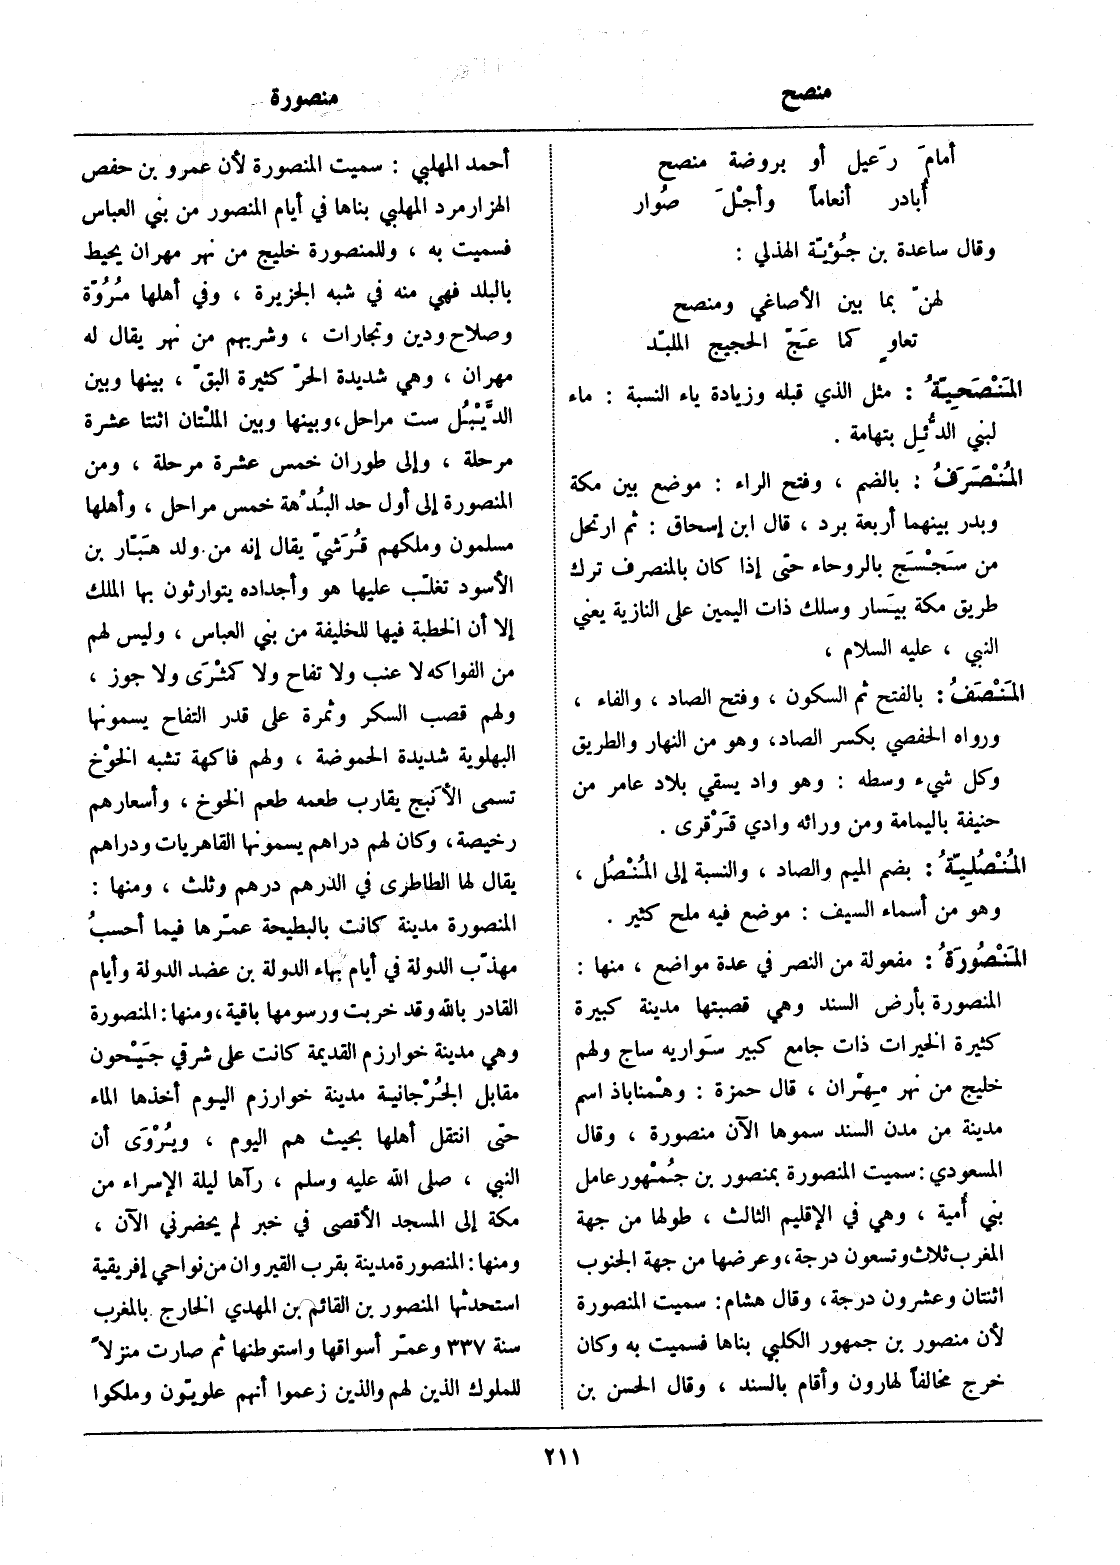 منصح
منصورة
أمامَ رَعيل أو بروضة منصح
أُبادر أنعاماً وأجْلَ صُوار
وقال ساعدة بن جُؤيّة الهذلي :
لهنّ بما بين الأصاغي ومنصح
تعاوٍ كما عَجّ الحجيج الملبّد
المَنْصَحِيّةُ : مثل الذي قبله وزيادة ياء النسبة : ماء
لبني الدُّئِل بتهامة .
المُنْصَرَفُ : بالضم ، وفتح الراء : موضع بين مكة
وبدر بينهما أربعة برد ، قال ابن إسحاق : ثم ارتحل
من سَجْسَج بالروحاء حتى إذا كان بالمنصرف ترك
طريق مكة بيَسار وسلك ذات اليمين على النازية يعني
النبي ، عليه السلام ،
المَنْصَفُ : بالفتح ثم السكون ، وفتح الصاد ، والفاء ،
ورواه الحفصي بكسر الصاد، وهو من النهار والطريق
وكل شيء وسطه : وهو واد يسقي بلاد عامر من
حنيفة باليمامة ومن ورائه وادي قَرْقرى .
المُنْصُلِيّةُ : بضم الميم والصاد ، والنسبة إلى المُنْصُل ،
وهو من أسماء السيف : موضع فيه ملح كثير .
المَنْصُورَةُ : مفعولة من النصر في عدة مواضع ، منها :
المنصورة بأرض السند وهي قصبتها مدينة كبيرة
كثيرة الخيرات ذات جامع كبير سَواريه ساج ولهم
خليج من نهر مِهْران ، قال حمزة : وهْمناباذ اسم
مدينة من مدن السند سموها الآن منصورة ، وقال
المسعودي : سميت المنصورة بمنصور بن جُمْهور عامل
بني أُمية ، وهي في الإقليم الثالث ، طولها من جهة
المغرب ثلاث وتسعون درجة، وعرضها من جهة الجنوب
اثنتان وعشرون درجة، وقال هشام: سميت المنصورة
لأن منصور بن جمهور الكلبي بناها فسميت به وكان
خرج مخالفاً لهارون وأقام بالسند ، وقال الحسن بن
أحمد المهلبي : سميت المنصورة لأن عمرو بن حفص
الهزارمرد المهلبي بناها في أيام المنصور من بني العباس
فسميت به ، وللمنصورة خليج من نهر مهران يحيط
بالبلد فهي منه في شبه الجزيرة ، وفي أهلها مُرُوّة
وصلاح ودين وتجارات ، وشربهم من نهر يقال له
مهران ، وهي شديدة الحرّ كثيرة البقّ ، بينها وبين
الدَّيْبُل ست مراحل، وبينها وبين الملْتان اثنتا عشرة
مرحلة ، وإلى طوران خمس عشرة مرحلة ، ومن
المنصورة إلى أول حد البُدْهة خمس مراحل ، وأهلها
مسلمون وملكهم قُرَشيّ يقال إنه من ولد هَبّار بن
الأسود تغلّب عليها هو وأجداده يتوارثون بها الملك
إلا أن الخطبة فيها للخليفة من بني العباس ، وليس لهم
من الفواكه لا عنب ولا تفاح ولا كمثْرَى ولا جوز ،
ولهم قصب السكر وثمرة على قدر التفاح يسمونها
البهلوية شديدة الحموضة ، ولهم فاكهة تشبه الخوْخ
تسمى الأنبج يقارب طعمه طعم الخوخ ، وأسعارهم
رخيصة، وكان لهم دراهم يسمونها القاهريات ودراهم
يقال لها الطاطرى في الدرهم درهم وثلث ، ومنها :
المنصورة مدينة كانت بالبطيحة عمّرها فيما أحسبُ
مهذّب الدولة في أيام بهاء الدولة بن عضد الدولة وأيام
القادر بالله وقد خربت ورسومها باقية، ومنها: المنصورة
وهي مدينة خوارزم القديمة كانت على شرقي جَيْحون
مقابل الجُرْجانية مدينة خوارزم اليوم أخذها الماء
حتى انتقل أهلها بحيث هم اليوم ، ويُرْوَى أن
النبي ، صلى الله عليه وسلم ، رآها ليلة الإسراء من
مكة إلى المسجد الأقصى في خبر لم يحضرني الآن ،
ومنها: المنصورة مدينة بقرب القيروان من نواحي إفريقية
استحدثها المنصور بن القائم بن المهدي الخارج بالمغرب
سنة ٣٣٧ وعمّر أسواقها واستوطنها ثم صارت منزلاً
للملوك الذين لهم والذين زعموا أنهم علويّون وملكوا
٢١١